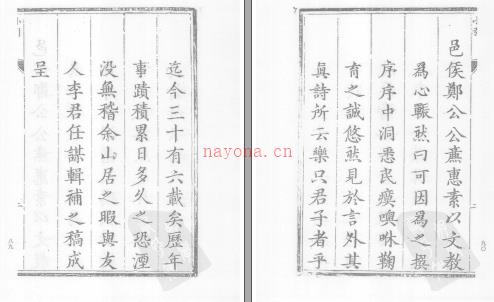 迄今三十有六載矣歷年
事蹟積累日多久之恐湮
没無稽余山居之暇與友
人李君任謀輯補之稿成
呈
八九
邑侯鄭公公燕惠素以文教
為心辴然曰可因為之撰
序序中洞悉民瘼噢咻鞠
育之誠悠然見於言外其
眞詩所云樂只君子者乎
九〇
nayona.cn